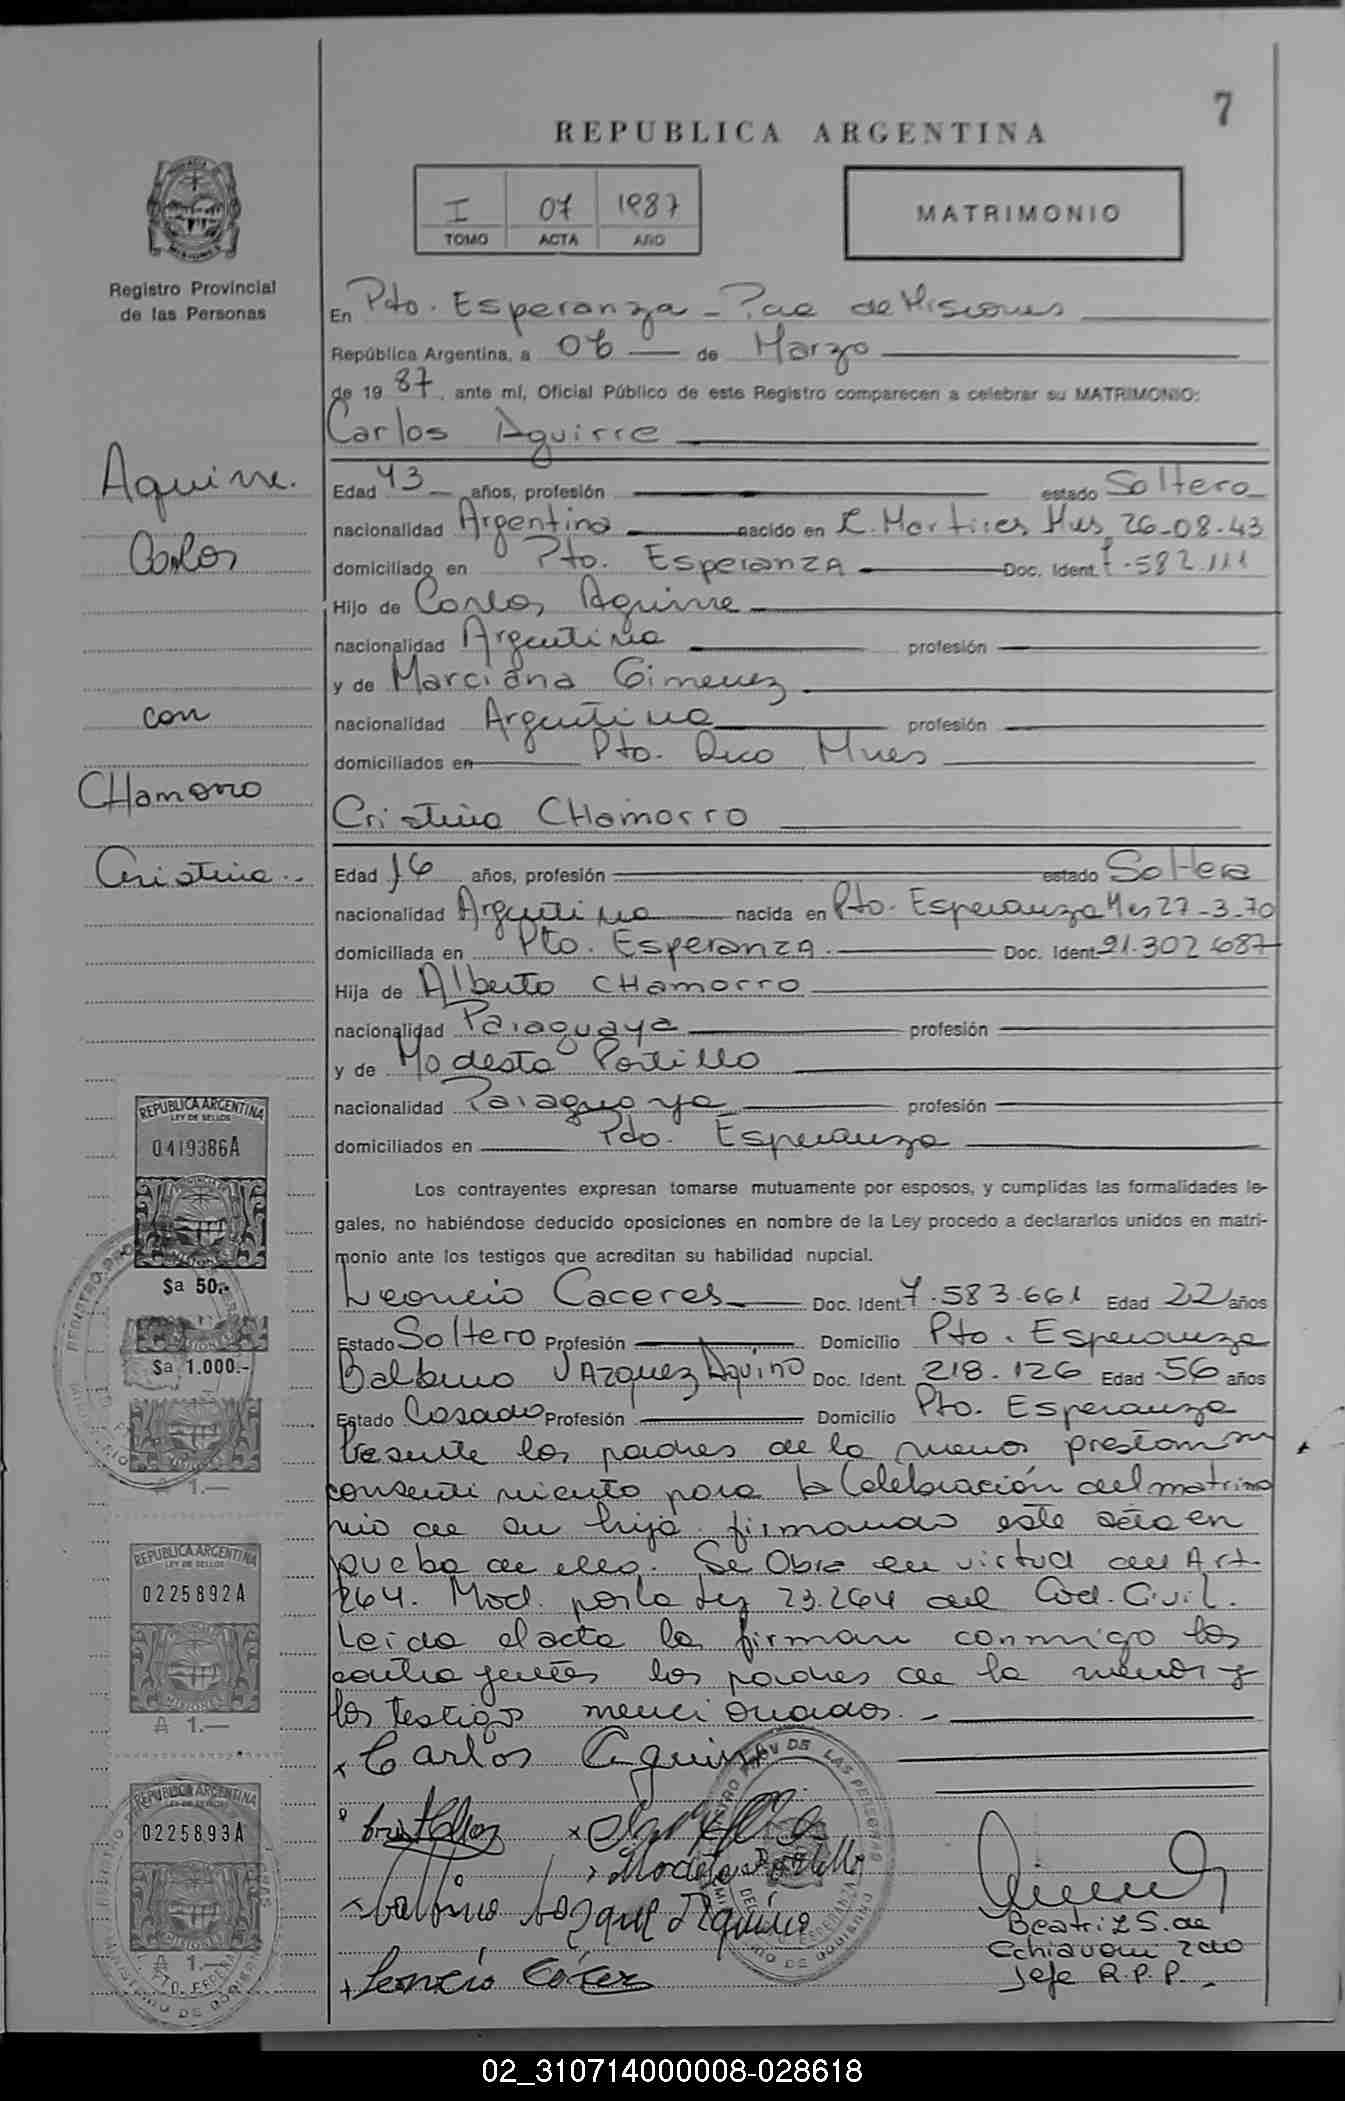 7
REPUBLICA ARGENTINA
I 07 1987
TOMO ACTA AÑO
MATRIMONIO
Registro Provincial
de las Personas
En Pto. Esperanza - Pcia de Misiones
República Argentina, a 06 de Marzo
de 1987, ante mí, Oficial Público de este Registro comparecen a celebrar su MATRIMONIO:
Carlos Aguirre
Aguirre.
Carlos
con
CHamorro
Cristina.-
Edad 43 años, profesión estado Soltero
nacionalidad Argentina nacido en C. Martires Mnes 26-08-43
domiciliado en Pto. Esperanza Doc. Ident. 7.582.111
Hijo de Carlos Aguirre
nacionalidad Argentina profesión
y de Marciana Gimenez
nacionalidad Argentina profesión
domiciliados en Pto. Rico Mnes
Cristina CHamorro
Edad 16 años, profesión estado Soltera
nacionalidad Argentina nacida en Pto. Esperanza Mnes 27-3-70
domiciliada en Pto. Esperanza. Doc. Ident. 21.302.687
Hija de Alberto CHamorro
nacionalidad Paraguaya profesión
y de Modesta Portillo
nacionalidad Paraguaya profesión
domiciliados en Pto. Esperanza
Los contrayentes expresan tomarse mutuamente por esposos, y cumplidas las formalidades le-
gales, no habiéndose deducido oposiciones en nombre de la Ley procedo a declararlos unidos en matri-
monio ante los testigos que acreditan su habilidad nupcial.
Leoncio Caceres Doc. Ident. 7.583.661 Edad 22 años
Estado Soltero Profesión Domicilio Pto. Esperanza
Balbino VAzquez Aquino Doc. Ident. 218.126 Edad 56 años
Estado Casado Profesión Domicilio Pto. Esperanza
Presente los padres de la menor prestam su
consentimiento para la Celebración del matrimo
nio de su hija firmando este acta en
prueba de ello. Se Obra en virtud del Art.
264. Mod. por la Ley 23.264 del Cod. Civil.
Leida el acta la firman conmigo los
contrayentes los padres de la menor y
los testigos mencionados.-
x Carlos Aguirre
x Modesta Portillo
x Balbino Vazquez Aquino
+ Leoncio Caceres
Beatriz S. de
Echiavoni
Jefe R.P.P.
REPUBLICA ARGENTINA
LEY DE SELLOS
0419386A
$a 50.-
$a 1.000.-
1.—
REPUBLICA ARGENTINA
LEY DE SELLOS
0225892A
MISIONES
A 1.—
REPUBLICA ARGENTINA
LEY DE SELLOS
0225893A
MISIONES
A 1.—
02_310714000008-028618